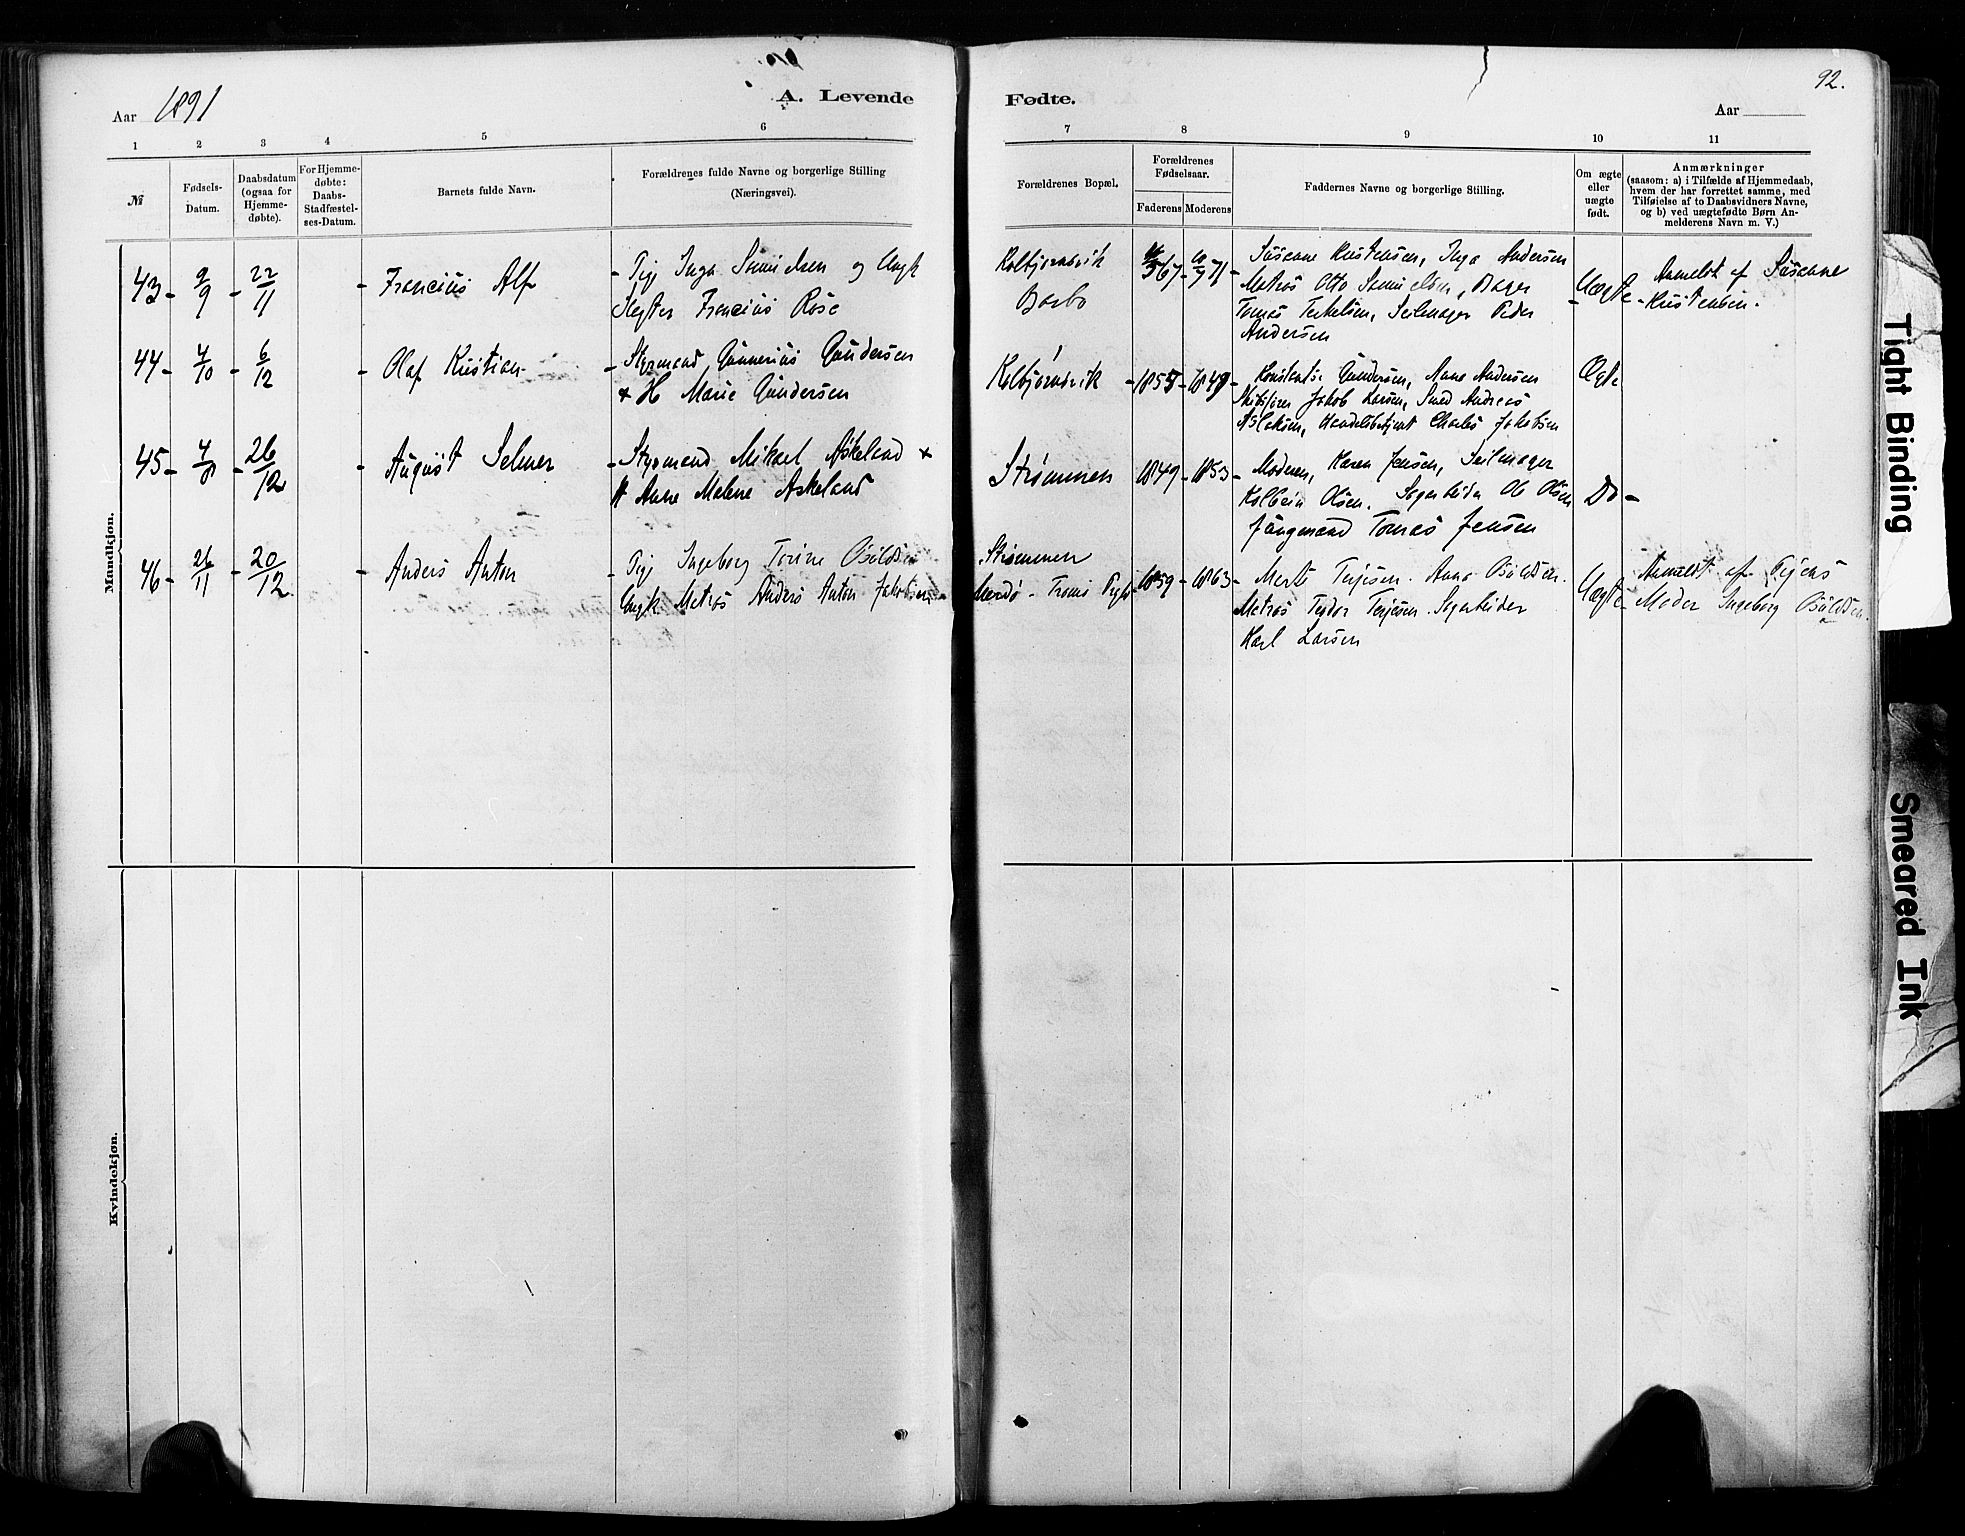 92.
Aar 1891
A. Levende
Fødte.
Aar
1 2 3 4 5 6
7 8 9 10 11
№
Fødsels-
Datum.
Daabsdatum
(ogsaa for
Hjemme-
døbte).
For Hjemme-
døbte:
Daabs-
Stadfæstel-
ses-Datum.
Barnets fulde Navn.
Forældrenes fulde Navne og borgerlige Stilling
(Næringsvei).
Forældrenes Bopæl.
Forældrenes
Fødselsaar.
Faderens Moderens
Faddernes Navne og borgerlige Stilling.
Om ægte
eller
uægte
født.
Anmærkninger
(saasom: a) i Tilfælde af Hjemmedaab,
hvem der har forrettet samme, med
Tilføielse af to Daabsvidners Navne,
og b) ved uægtefødte Børn An-
melderens Navn m. V.)
Mandkjøn.
43 - 9/9 - 22/11 - Francius Alf
- Pige Inga Samuelsen og Ungk
Slagter Francius Rose
Kolbjørnsvik
Barbo
67 - 71 -
Susanne Kristensen, Inga Andersen
Matros Otto Samuelsen, Bager
Tomas Terkelsen, Seilmager Peder
Andersen
Uægte
- Anmeldt af Susanne
Kristensen.
44 - 4/10 - 6/12 - Olaf Kristian
- Styrmand Gunnerius Gundersen
& H Marie Gundersen
Kolbjørnsvik - 1855 - 1849 -
Gundersen, Anne Andersen
Skibsfører Jakob Larsen, Smed Andreas
Aslaksen, Handelsbetjent Charles Jakobsen
Ægte
45 - 4/8 - 26/12 - August Selmer
- Styrmand Mikael Askeland &
H Anne Malene Askeland
Strømmen 1849 - 1853 -
Moderen, Karen Jensen, Seilmager
Kolbein Olsen. Sagarbeider Ole Olsen
Ungemand Tomas Jensen
Do -
46 - 26/11 - 20/12 - Anders Anton
- Pige Ingeborg Torine Bøildsen
Ungk Matros Anders Anton Jakobsen
Strømmen
Merdø - Tromø 1859 - 1863 -
Marte Terjesen. Anna Bøildsen.
Matros Terjesen. Sagarbeider
Karl Larsen
Uægte
Anmeldt af Pigens
- Moder Ingeborg Bøildsen.
Kvindekjøn.
Tight Binding
Smeared Ink